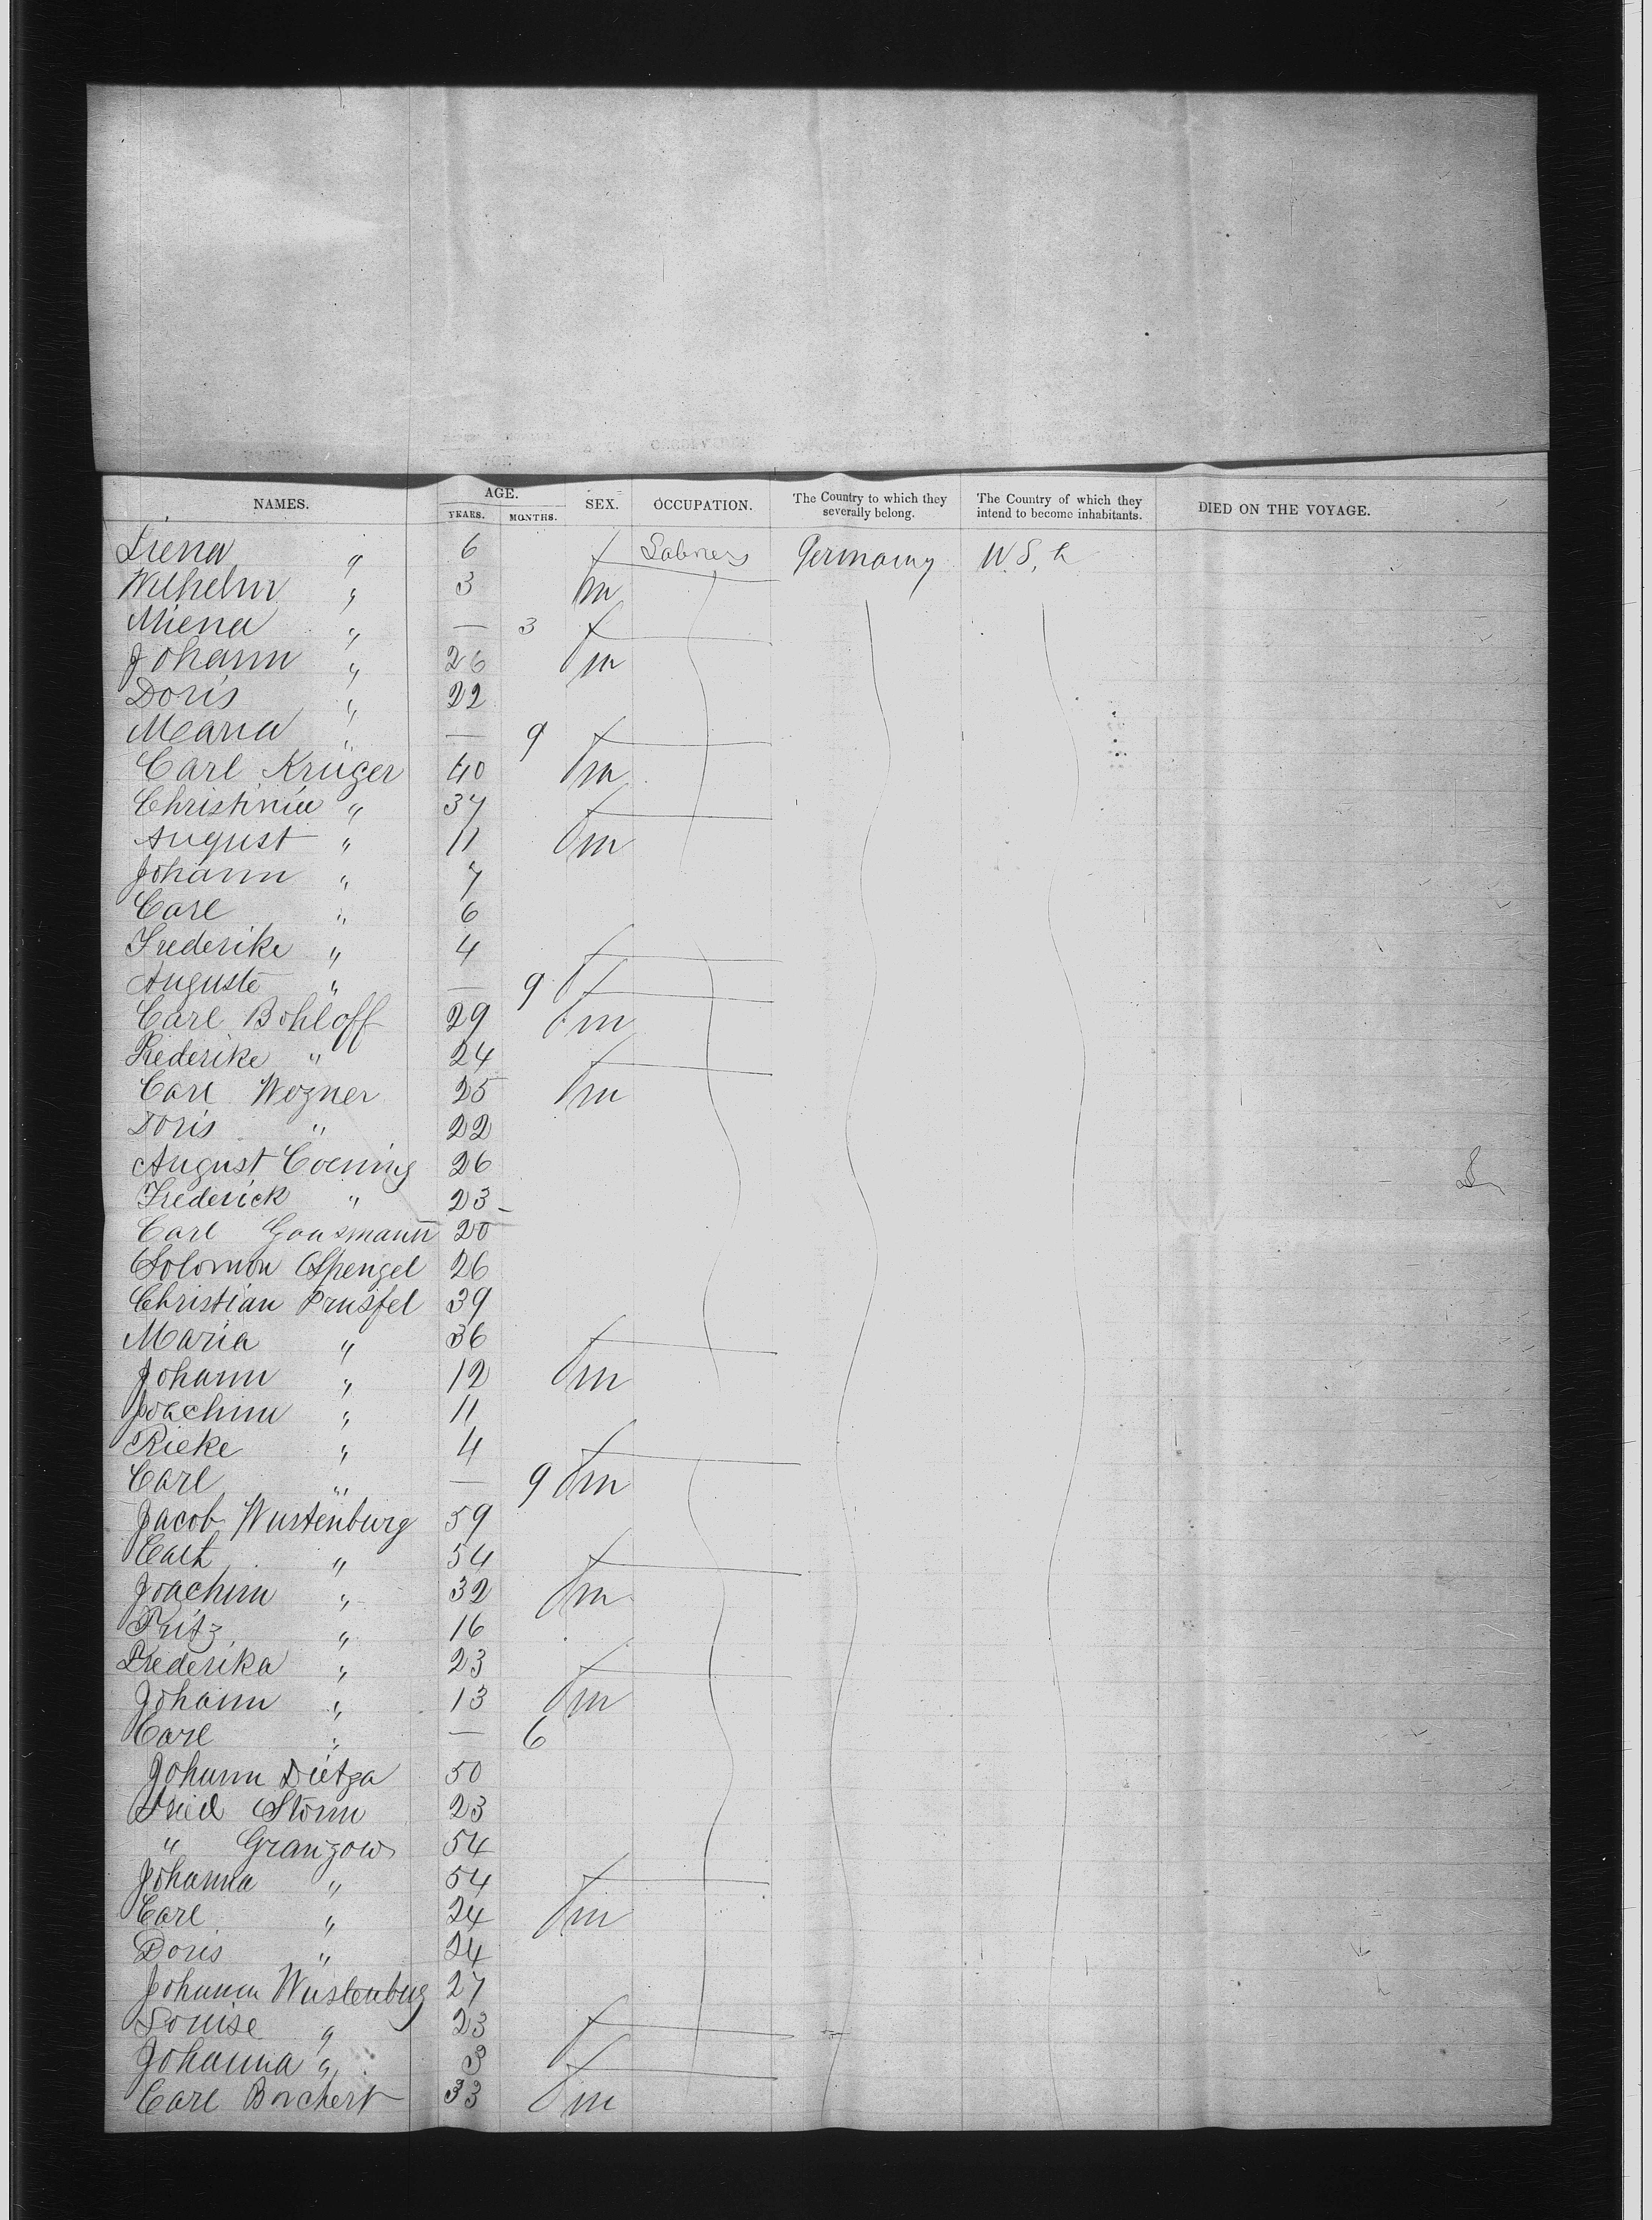 NAMES. AGE. YEARS. MONTHS. SEX. OCCUPATION. The Country to which they severally belong. The Country of which they intend to become inhabitants. DIED ON THE VOYAGE.
Liena " 6 f Labrers Germany U.S.A
Wilhelm " 3 m
Miena " — 3 f
Johann " 26 m
Doris " 22
Maria " — 9 f
Carl Krüger 40 m
Christinia " 37 f
August " 11 m
Johann " 7
Carl " 6
Frederike " 4 f
Auguste " — 9 f
Carl Bohloff 29 m
Frederike " 24 f
Carl Wozner 25 m
Doris " 22
August Coening 26
Frederick " 23
Carl Gousmann 20
Solomon Spengel 26
Christian 39
Maria " 36 f
Johann " 12 m
Joachim " 11
Rieke " 4 f
Carl " — 9 m
Jacob Wustenburg 59
Cath " 54 f
Joachim " 32 m
Fritz " 16
Frederika " 23 f
Johann " 13 m
Carl " — 6
Johann Dietza 50
Fried Storm 23
" Granzow 54
Johanna " 54 f
Carl " 24 m
Doris " 24
Johann Wustenbug 27
Louise " 23 f
Johanna " 3 f
Carl Borchert 33 m